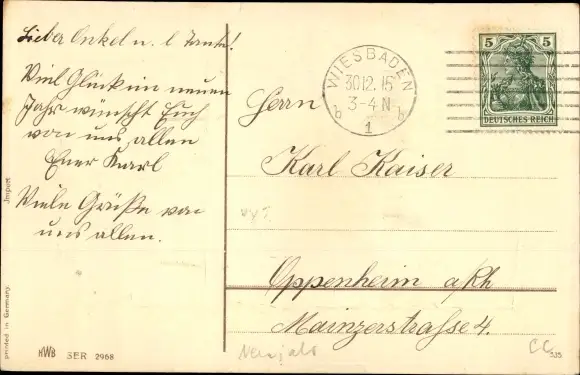 Lieber Onkel u. l Tante!
Viel Glück im neuen
Jahr wünscht Euch
von uns allen
Euer Karl
Viele Grüße von
uns allen.
WIESBADEN
30.12.15
3-4 N
b 1 b
5 5
DEUTSCHES REICH
Herrn
Karl Kaiser
Oppenheim a/Rh
Mainzerstrasse 4.
Import
printed in Germany.
HWB SER 2968
Neujahr
335